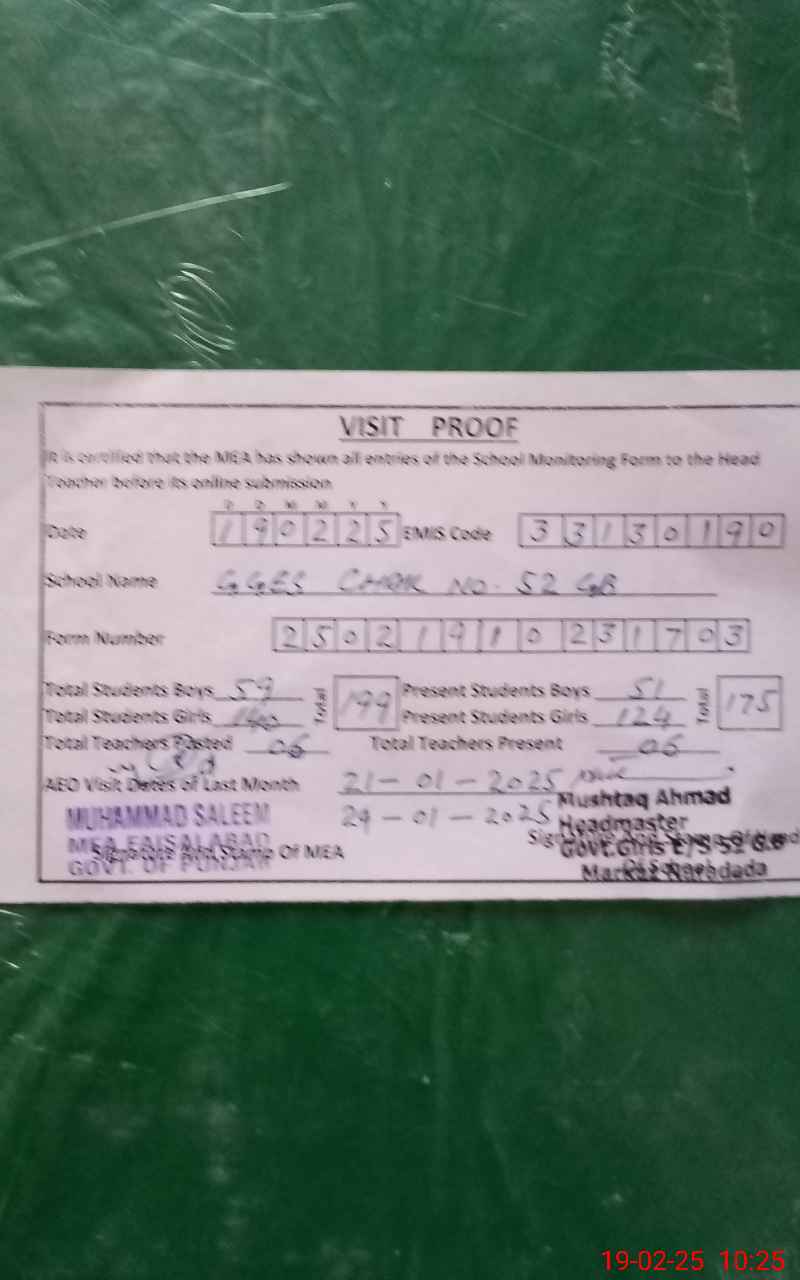 VISIT PROOF
It is certified that the MEA has shown all entries of the School Monitoring Form to the Head
Teacher before its online submission
D D M M Y Y
Date 190225 EMIS Code 33130190
School Name GGES CHAK NO. 52 GB
Form Number 25021910231703
Total Students Boys 59 Total 199 Present Students Boys 51 Total 175
Total Students Girls 140 Present Students Girls 124
Total Teachers Posted 06 Total Teachers Present 06
AEO Visit Dates of Last Month 21-01-2025
29-01-2025
MUHAMMAD SALEEM
MEA FAISALABAD
GOVT. OF PUNJAB
Signature and Stamp Of MEA
Mushtaq Ahmad
Headmaster
Govt. Girls E/S 52 G.B
Markaz
19-02-25 10:25